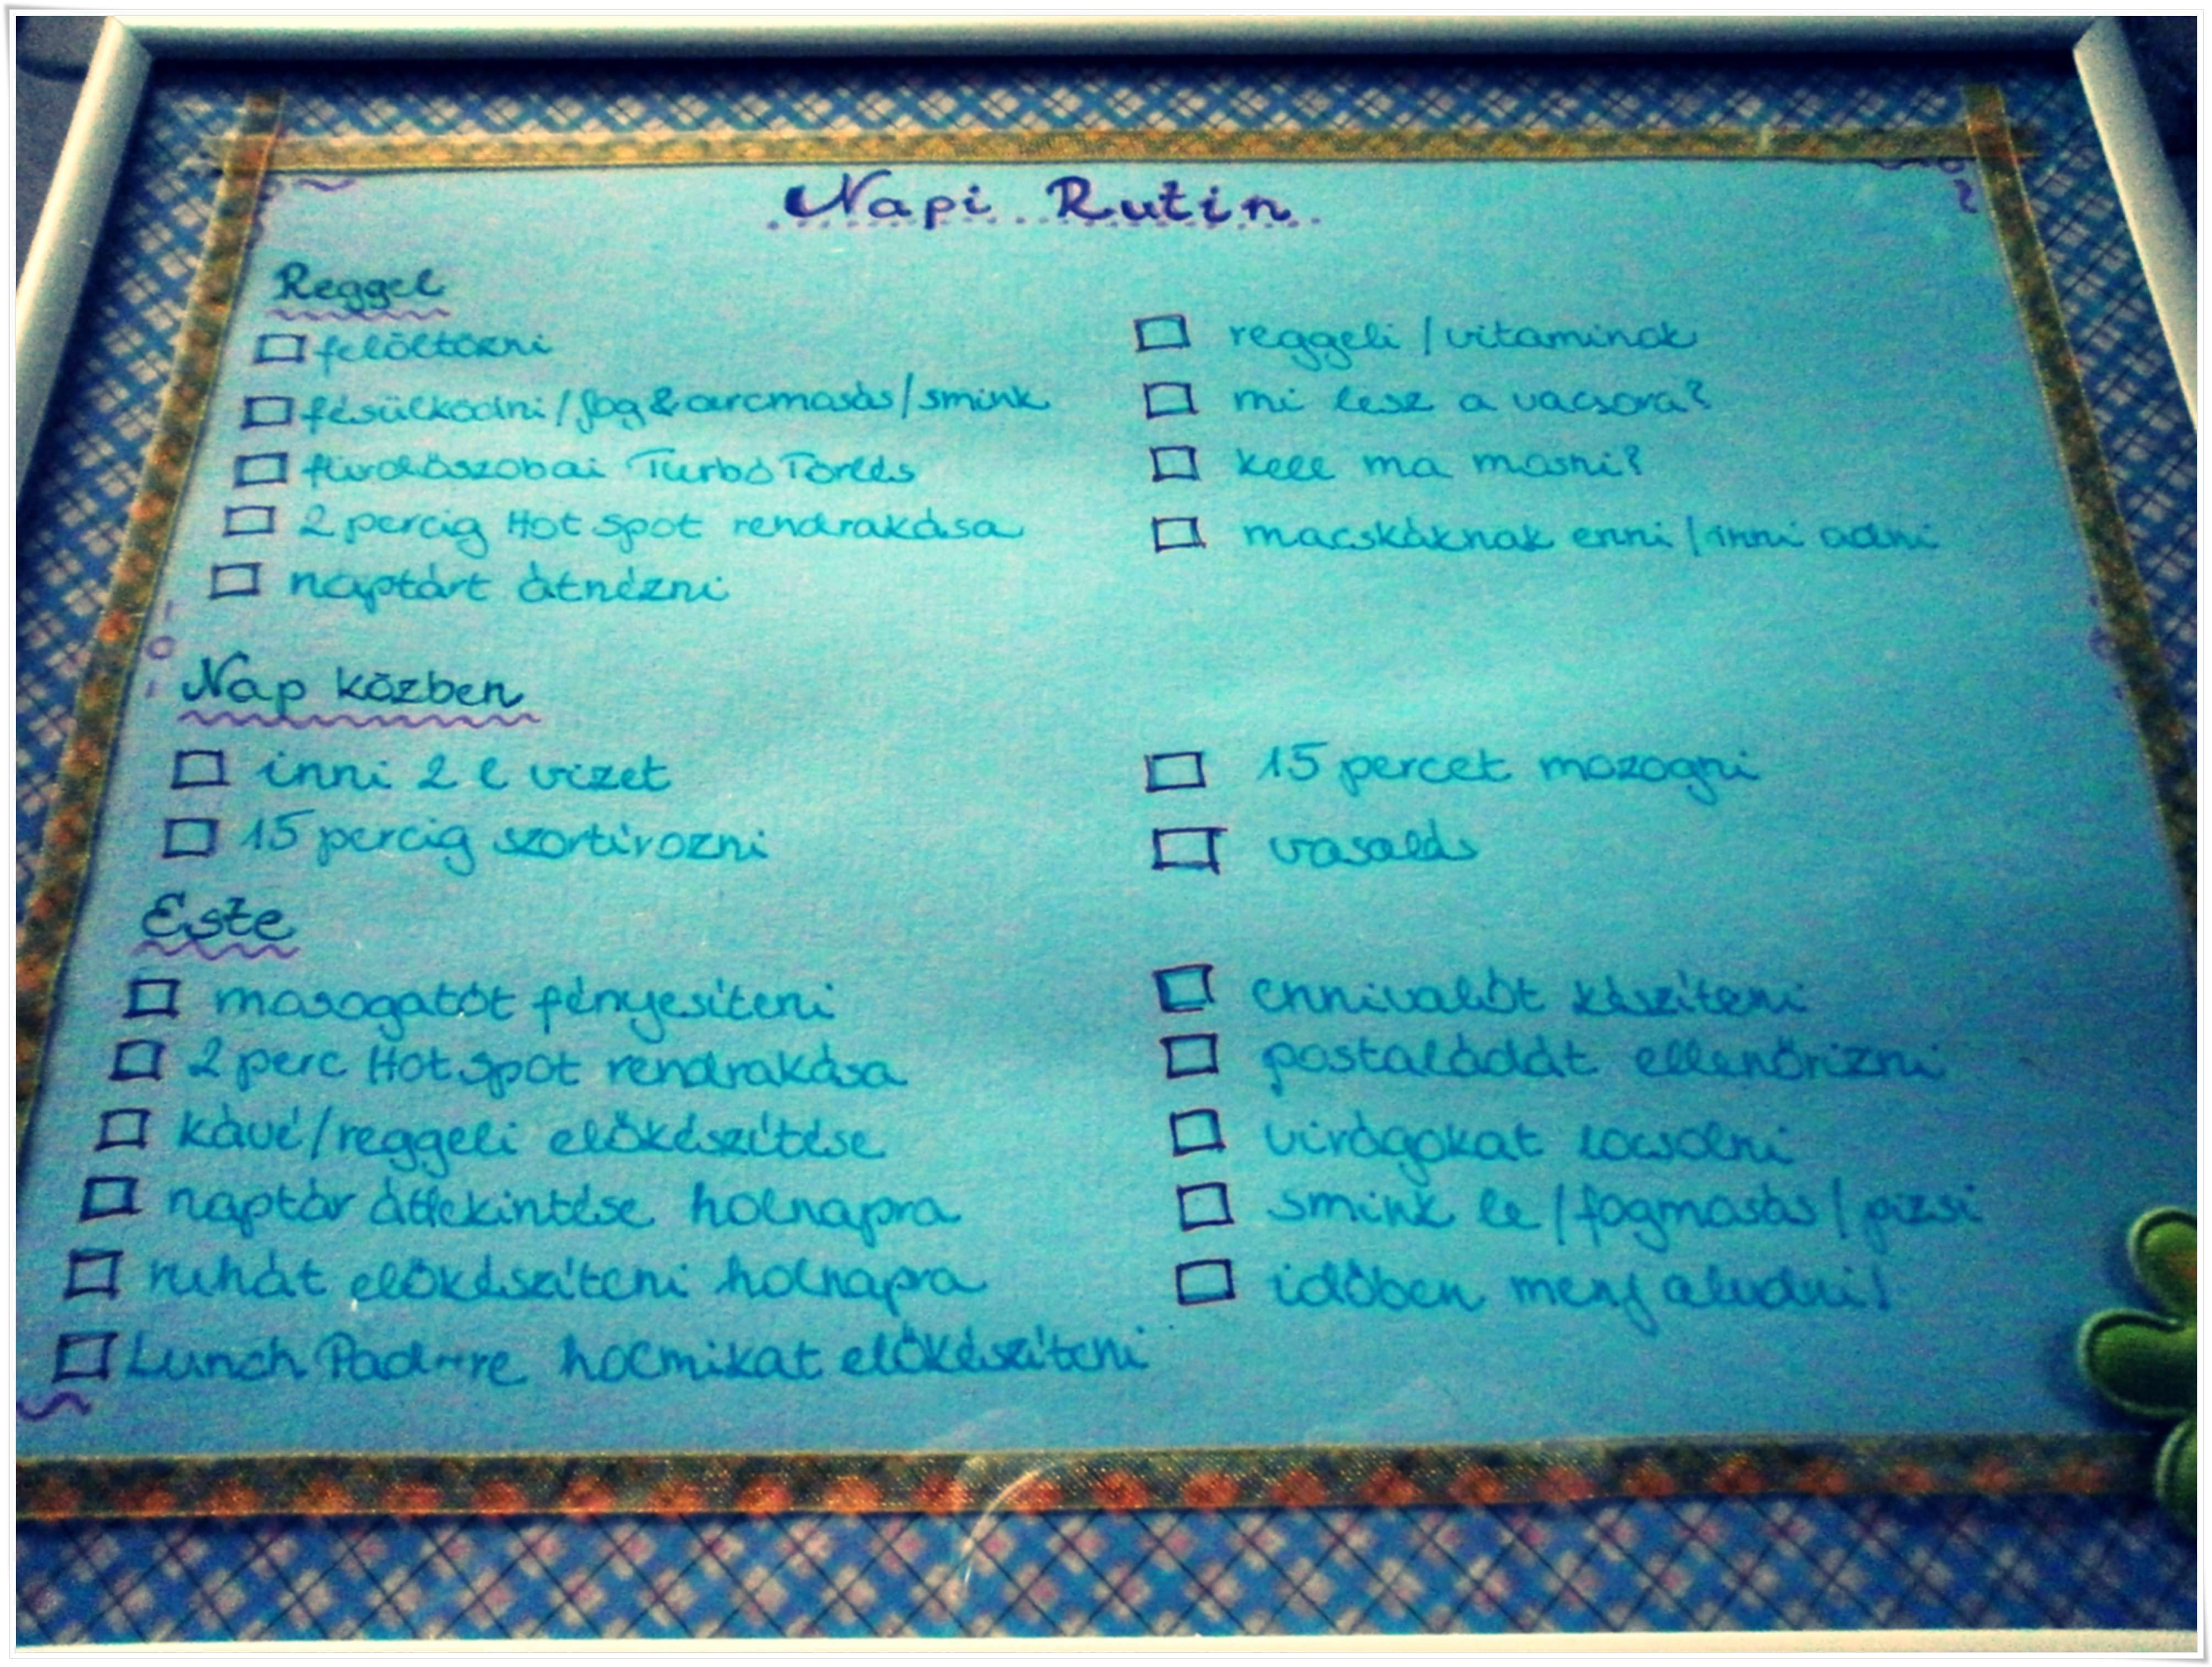 Napi Rutin
Reggel
felöltözni
fésülködni/fog&arcmosás/smink
fürdőszobai Turbó Törlés
2 percig Hot Spot rendrakása
naptárt átnézni
reggeli/vitaminok
mi lesz a vacsora?
kell ma mosni?
macskáknak enni/inni adni
Nap közben
inni 2 l vizet
15 percig szortírozni
15 percet mozogni
vasalás
Este
mosogatót fényesíteni
2 perc Hot Spot rendrakása
kávé/reggeli előkészítése
naptár áttekintése holnapra
ruhát előkészíteni holnapra
Lunch Pad-re holmikat előkészíteni
ennivalót készíteni
postaládát ellenőrizni
virágokat locsolni
smink le/fogmosás/pizsi
időben menj aludni!